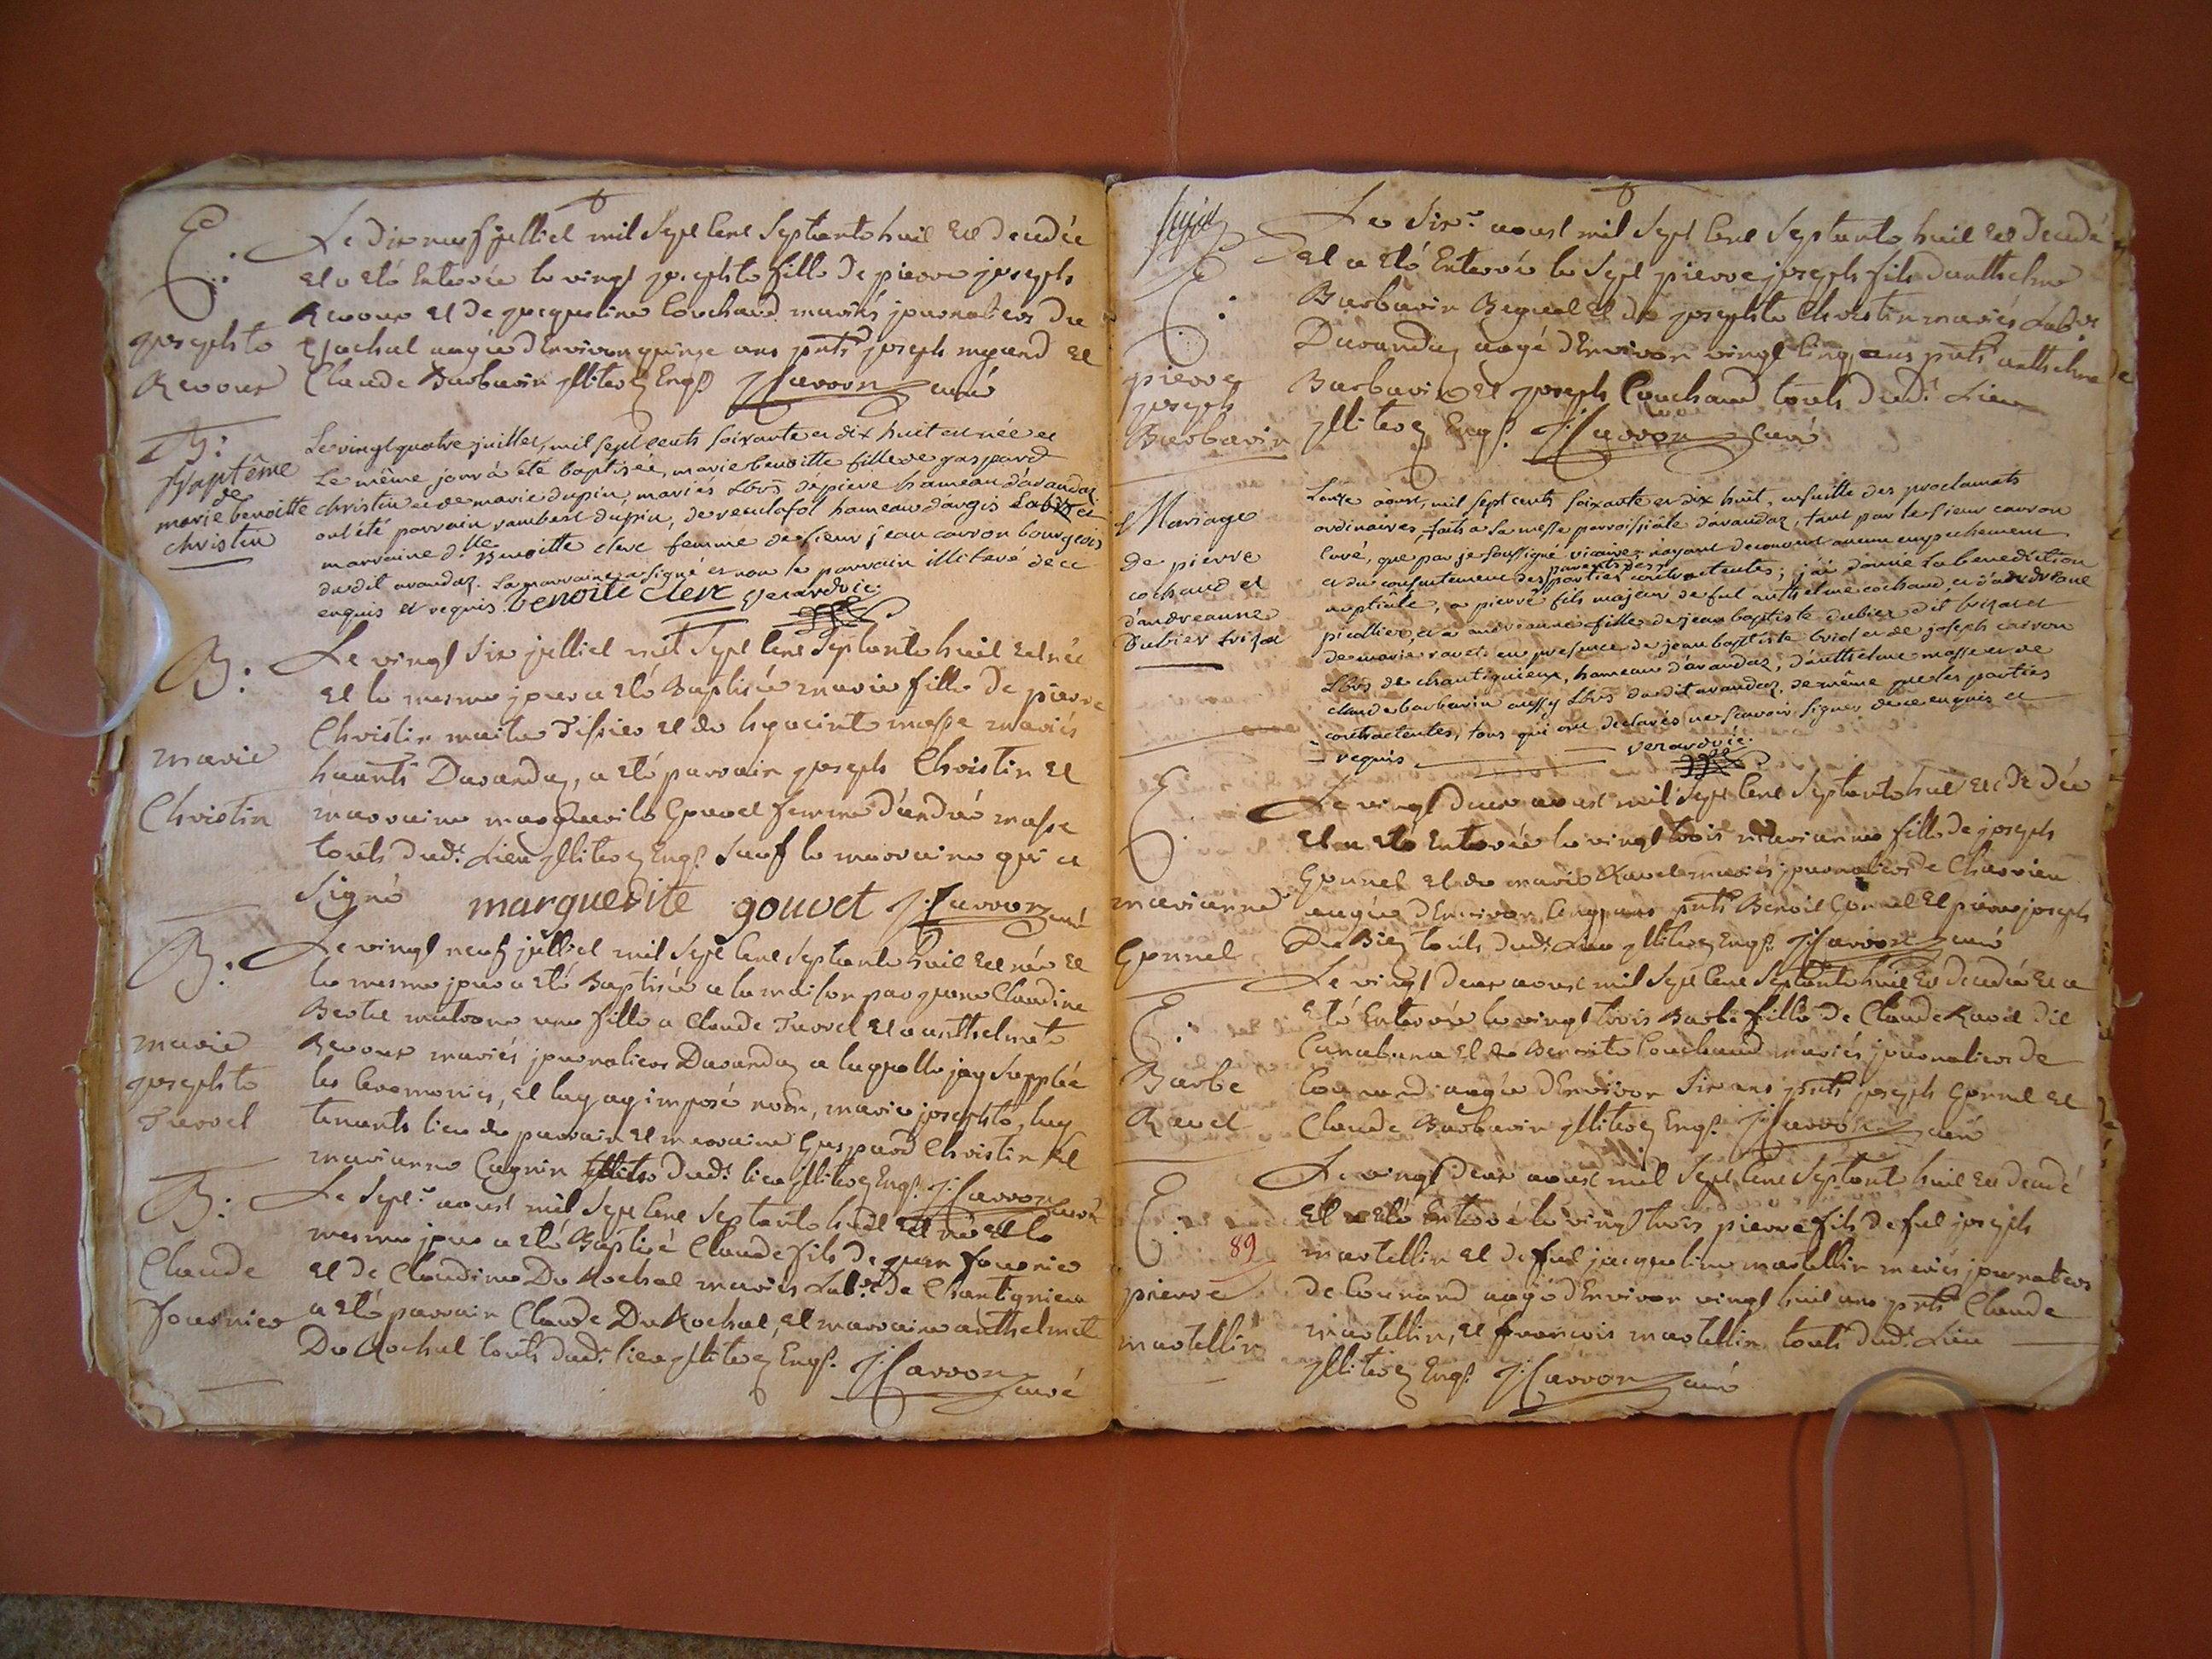 E:
josephte
Revoux
Le dix neuf jüilliet mil sept cent septante huit est decedée
et a eté enterrée le vingt josephte fille de pierre joseph
Revoux et de jacqueline Couchaud mariés journaliers du
Rochat aagée d'environ quinze ans pnts joseph
Claude Barbarin jlliterez Enqs J: Carron curé
B:
Baptême
de
marie benoitte
christin
Le vingt quatre juillet, mil sept cents soixante et dix huit est née et
Le même jour à été baptisée, marie benoitte fille de gaspard
christin et de marie dupin, mariés Lbrs de pierre hameau d'arandaz
ont été parrain rambert dupin, de reculafol hameau d'argis Labr et
marraine dlle Benoitte clerc femme de sieur jean carron bourgeois
dudit arandaz. La marraine a signé et non le parrain illiteré de ce
enquis et requis. benoite clerc verard vic:
B:
marie
Christin
Le vingt six jüilliet mil sept cent septante huit est née
et le mesme jour a eté Baptisée marie fille de pierre
Christin maitre Tissier et de hyacinte masse mariés
haants Darandaz, a eté parrain joseph Christin et
marraine marguerite Gouvet femme d'andré masse
touts dudt Lieu jlliterez Enqs sauf la marraine qui a
signé marguerite gouvet J: Carron curé
B:
marie
josephte
Turrel
Le vingt neuf jüilliet mil sept cent septante huit est née et
le mesme jour a eté Baptisée a la maison par jeanne Claudine
Bertet matrone une fille a Claude Turrel et a anthelmette
Revoux mariés journaliers Darandaz a laquelle jay supplée
les Ceremonies, et luy ay imposé nom, marie josephte, luy
tenants lieu de parrain et marraine Gaspard Christin et
marianne Cagnin dudt lieu jlliterez Enqs J: Carron curé
B:
Claude
fournier
Le sept aoust mil sept cent septante huit est né et le
mesme jour a eté Baptisé Claude fils de jean fournier
et de Claudine Du Rochat mariés Labrs de Chantignieu
a eté parrain Claude Du Rochat, et marraine anthelmette
Du Rochat touts dudt lieu jlliterez Enqs J: Carron curé
E:
pierre
joseph
Barbarin
Le six aoust mil sept cent septante huit est decedé
et a eté enterré le sept pierre joseph fils d'anthelme
Barbarin et de josephte Christin mariés Labrs
Darandaz aagé d'environ vingt cinq ans pnts anthelme
Barbarin et joseph Couchaud touts dudt Lieu
jlliterez Enqs J: Carron curé
Mariage
de pierre
cochaud et
d'andreanne
Dubier brizat
L'onze aoust, mil sept cents soixante et dix huit, ensuitte des proclamats
ordinaires, faits a la messe parroissiâle d'arandaz, tant par le sieur carron
curé, que par je soussigné vicaire, n'ayant decouvert aucun empechement
parents des
et du consentement des parties contractentes; j'ai donné La benediction
nuptiâle, a pierre fils majeur de fut anthelme cochaud, et d'andreanne
picollier, et a andreanne fille de jean baptiste dubier dit brizat et
de marie ravet en presence de jean baptiste bridet de joseph carron
Lbrs de chantignieux, hameau d'arandaz, d'anthelme masse et de
claude barbarin aussy Lbrs dudit arandaz, de même que les parties
contractentes, tous qui ont declarés ne sçavoir signer de ce enquis et
requis verard vic:
E:
marianne
Gonnet
Le vingt deux aoust mil sept cent septante huit est decedée
et a eté enterrée le vingt trois marianne fille de joseph
Gonnet et de marie Ravet mariés journaliers de Charvieu
aagée d'environ cinq ans pnts Benoit Gonnet et pierre joseph
Du Biez touts dudt Lieu jlliterez Enqs J: Carron curé
E:
Barbe
Ravet
Le vingt deux aoust mil sept cent septante huit est decedée et a
eté enterrée le vingt trois Barbe fille de Claude Ravet dit
et de Benoite Couchaud mariés journaliers de
Counand aagée d'environ six ans pnts joseph Gonnet et
Claude Barbarin jlliterez Enqs J: Carron curé
E:
89
pierre
martellin
Le vingt deux aoust mil sept cent septante huit est decedé
et a eté enterré le vingt trois pierre fils de fut joseph
martellin et de fut jacqueline martellin mariés journaliers
de Counand aagé d'environ vingt huit ans pnts Claude
martellin, et françois martellin touts dudt Lieu
jlliterez Enqs J: Carron curé